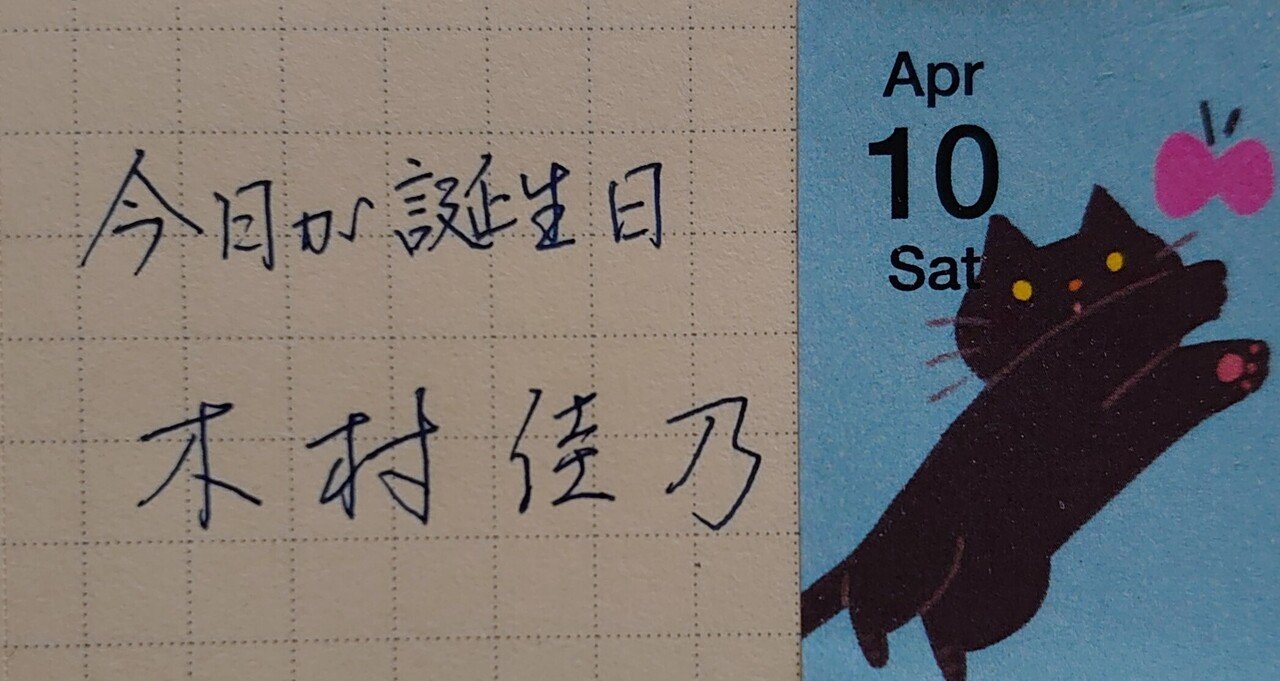 今日が誕生日
木村佳乃
Apr
10
Sat